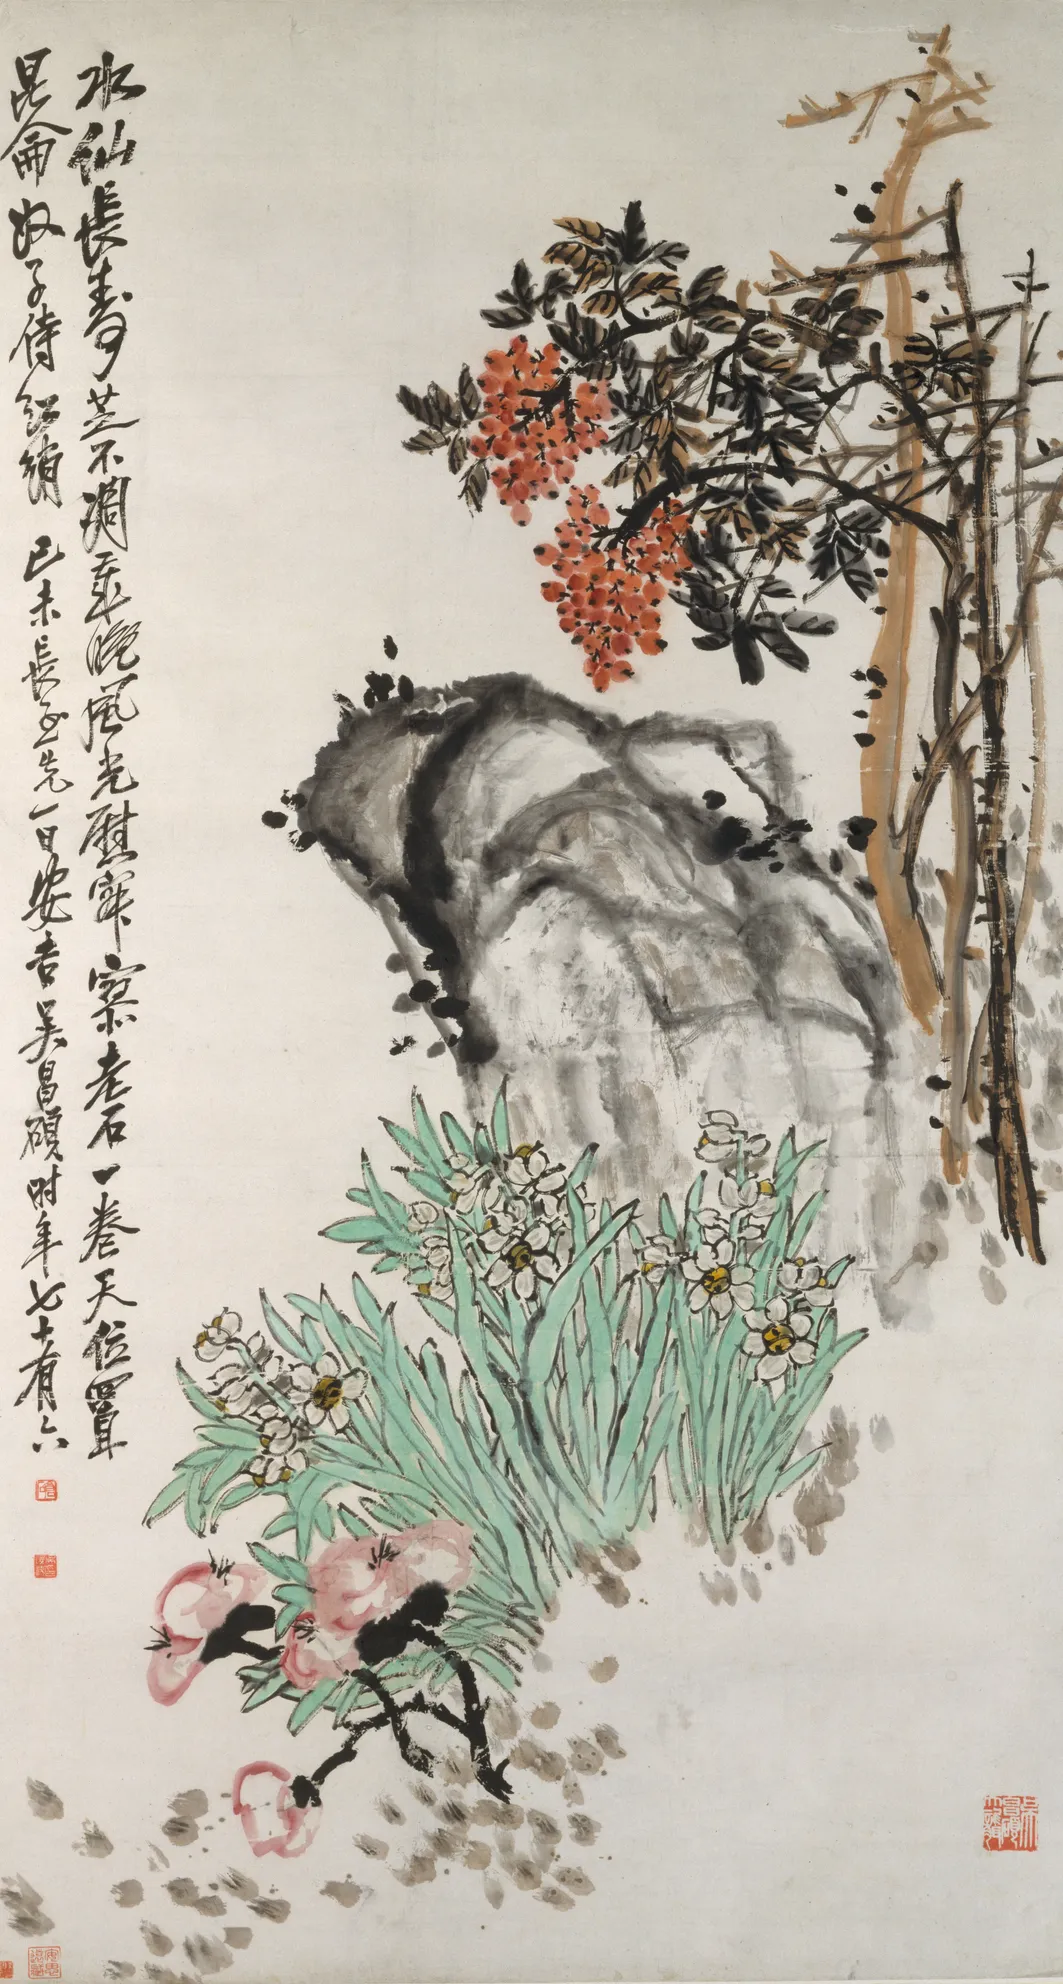 水仙長壽芝不凋歲晚風光慰寂寥老石一卷天位置
昆侖奴子侍紅綃 己未長至先一日安吉吳昌碩時年七十有六